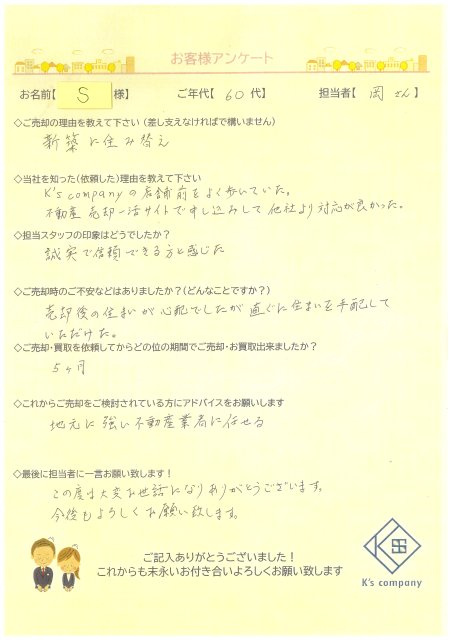 お客様アンケート
お名前【 S 様】 ご年代【 60 代】 担当者【 岡さん 】
◇ご売却の理由を教えて下さい (差し支えなければで構いません)
新築に住み替え
◇当社を知った(依頼した)理由を教えて下さい
K's companyの店舗前をよく歩いていた。
不動産売却一活サイトで申し込みして他社より対応が良かった。
◇担当スタッフの印象はどうでしたか?
誠実で信頼できる方と感じた
◇ご売却時のご不安などはありましたか?(どんなことですか?)
売却後の住まいが心配でしたが直ぐに住まいを手配して
いただけた。
◇ご売却・買取を依頼してからどの位の期間でご売却・お買取出来ましたか?
5ヶ月
◇これからご売却をご検討されている方にアドバイスをお願いします
地元に強い不動産業者に任せる
◇最後に担当者に一言お願い致します!
この度は大変お世話になりありがとうございます。
今後もよろしくお願い致します。
ご記入ありがとうございました!
これからも末永いお付き合いよろしくお願い致します
K's company